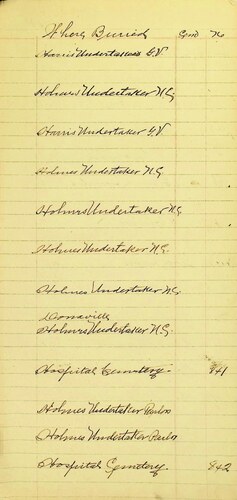 Where Buried Gra No
Harris Undertaker G.V.
Holmes Undertaker N.G.
Harris Undertaker G.V.
Holmes Undertaker N.G.
Holmes Undertaker N.G.
Holmes Undertaker N.G.
Holmes Undertaker N.G.
Holmes Undertaker N.G.
Hospital Cemetery 841
Holmes Undertaker Parlor
Holmes Undertaker Parlor
Hospital Cemetery 842